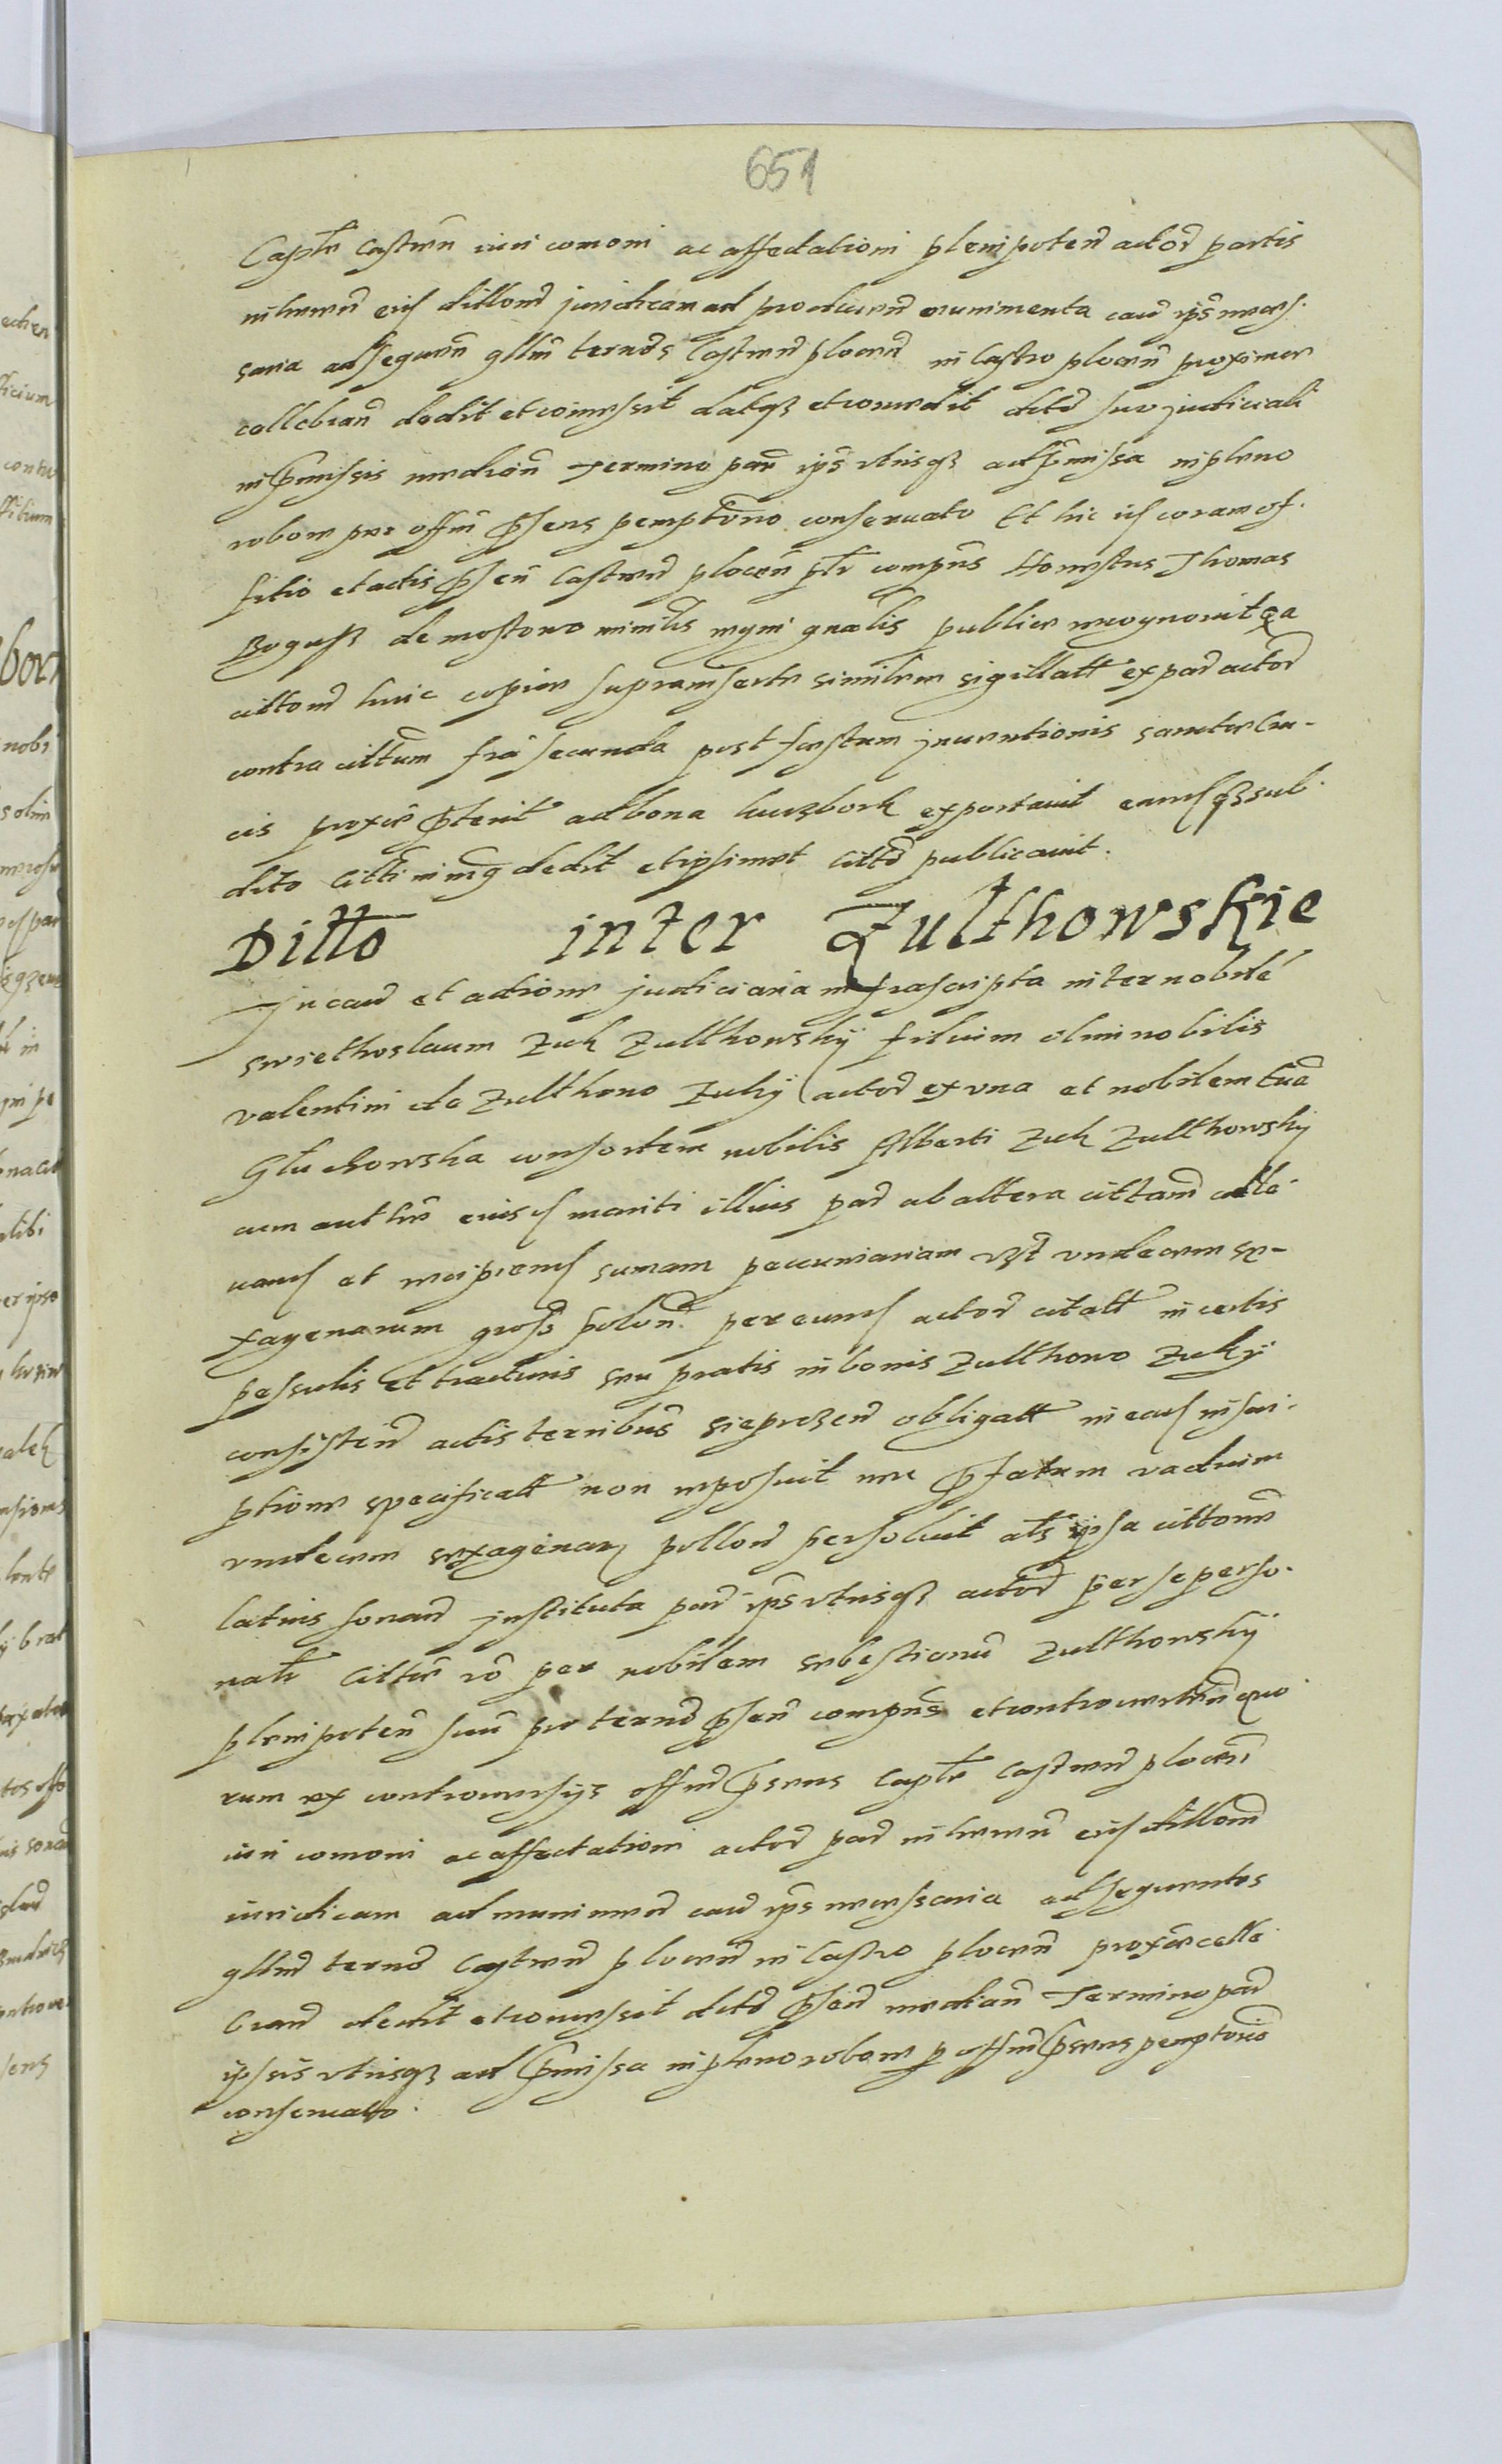 651
Captlr Castren iuri comoni ac affectationi plenipoten actor partis
inheren eius dillone juridicam ad producen munimenta caus ips necess.
saria ad sequen gllm termos Castren plocen in Castro plocen proxime
cellebran dedit et comissit datq3 et concedit dicto suo judiciali
in pmissis median termino par ips utrisq3 ad pmissa in pleno
robore per offm psens pemptorio conseruato Et hic id coram of.
fitio et actis psen Castren plocen plr compns Honestus Thomas
Bogusz de mostowo ministlis regni gnalis publice recognouit qa
citton huic copie suprainserte similem sigillatt ex par actor
contra cittum fria secunda post festum jnuentionis sancte Cru-
cis proxie pterit ad bona luczbork exportauit eamq3 sub.
dito Citti in mg dedit et ipsimet citto publicauit.
Ditto inter Zulthowskie
Jn caus et actione judiciaria infrascripta inter nobile
swiethoslaum Zuk Zulthowsky filium olim nobilis
valentini de Zulthowo Zuky actor ex vna et nobilem Eua
Gluchowska consortem nobilis Alberti Zuk Zulthowsky
cum auth eiusd mariti illius par ab altera cittam
et recipiend sumam pecuniariam vzt vndecim se-
xagenarum gross polon. per eund actor citatt in certis
pessulis et tracturis seu pratis in bonis Zulthowo Zuky
consisten actis terribus sieprczen obligatt in ead inscri-
ptione specificatt non reposuit nec pfatum vadium
vndecim sexagenar pollon persoluit als ipsa cittone
latius sonan jnstituta par ips vtrisq3 actor per se perso.
natr Citta vo per nobilem sebestianu Zulthowsky
plenipoten suu pro termo psen compns et controuerten quo
rum ex controuersijs offm psens Captlr Castren plocen
iuri comoni ac affectationi actor par inheren eius dillone
iuridicam ad munimen caus ips necessaria ad sequentes
gllm termos Castren plocen in Castro plocen proxe celle
bran dedit et concessit dicto psen median Termino par
ipsis vtrisq3 ad pmissa in pleno robore p offm psens pemptorio
conseruato.